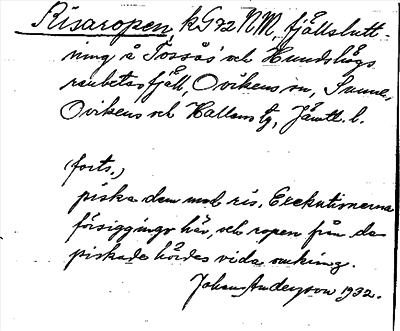 Risaropen, kG 72 NM, fjällslutt-
ning å Tossås' och Hundshögs
renbetesfjäll, Ovikens sn, Sunne,
Ovikens och Hallens tg, Jämtl. l.
(forts.)
piska dem med ris. Exekutionerna
försiggingo här, och ropen från de
piskade hördes vida omkring.
Johan Anderson 1932.